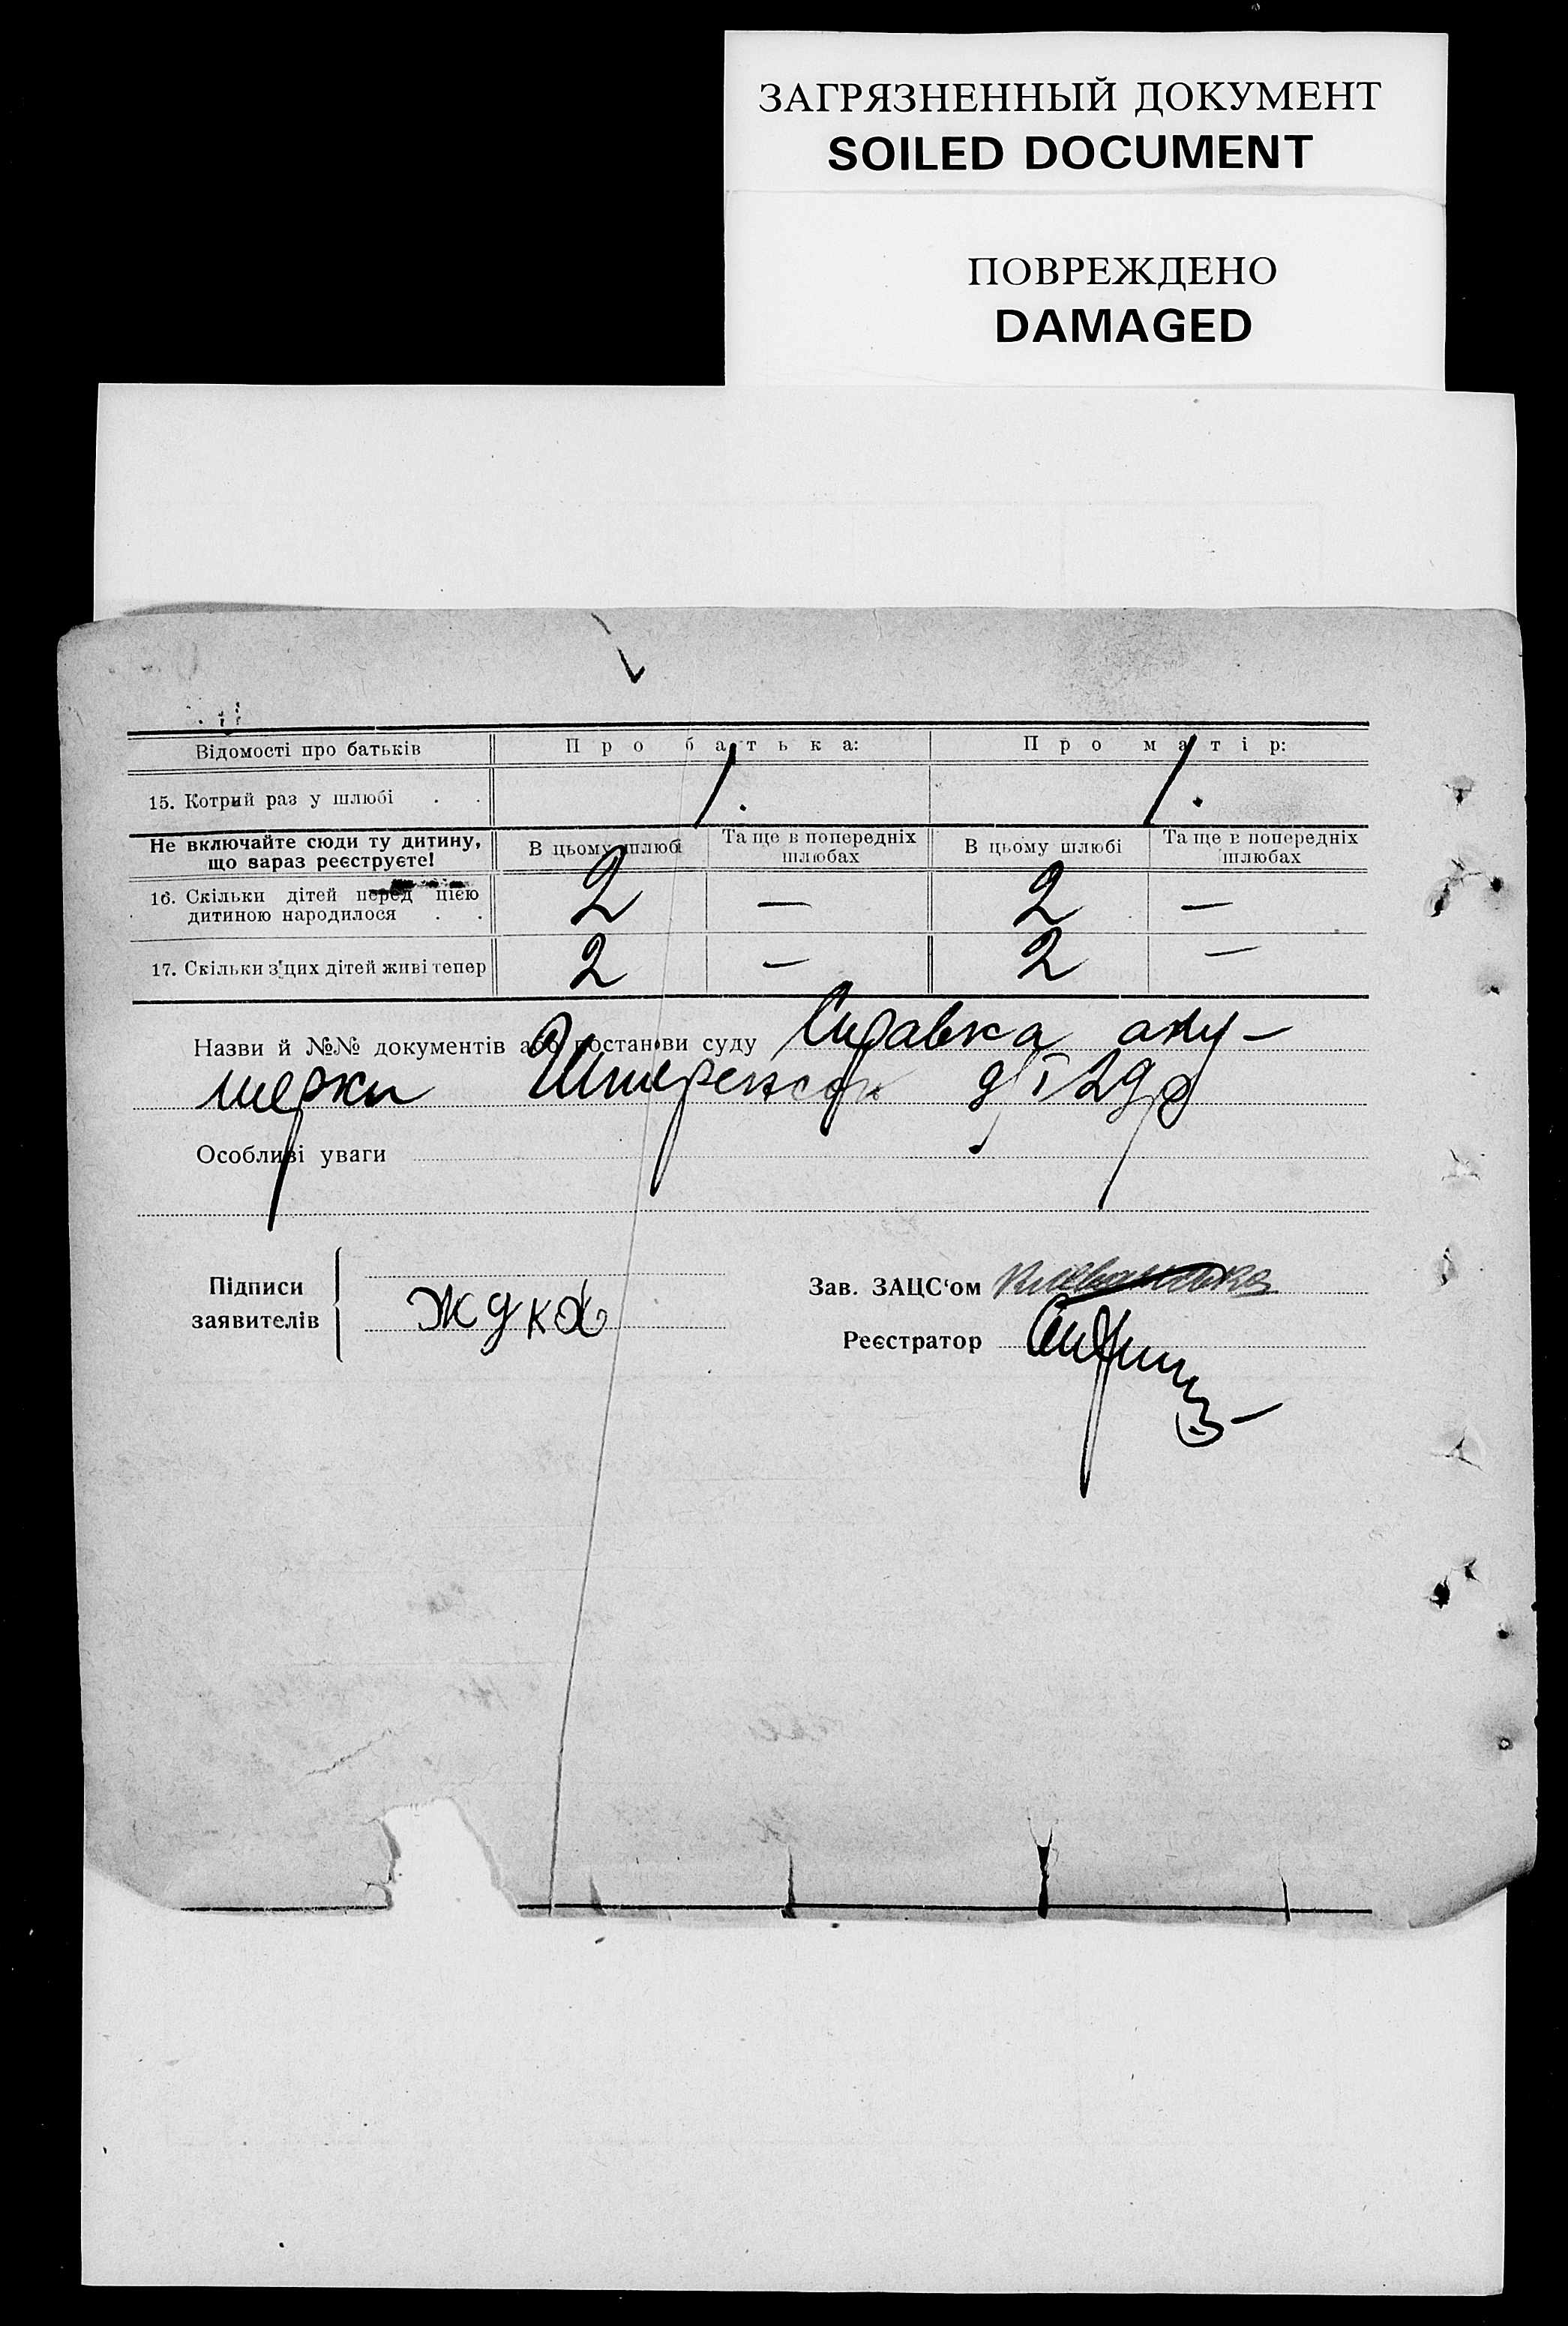 ЗАГРЯЗНЕННЫЙ ДОКУМЕНТ
SOILED DOCUMENT
ПОВРЕЖДЕНО
DAMAGED
Відомості про батьків Про батька: Про матір:
15. Котрий раз у шлюбі . . 1. 1.
Не включайте сюди ту дитину, що вараз реєструєте! В цьому шлюбі Та ще в попередніх шлюбах В цьому шлюбі Та ще в попередніх шлюбах
16. Скільки дітей перед цією
дитиною народилося . . 2 — 2 —
17. Скільки з'цих дітей живі тепер 2 — 2 —
Назви й №№ документів або постанови суду Справка аку-
шерки 9/I 29 р
Особливі уваги
Підписи
заявителів
Зав. ЗАЦС‘ом
Реєстратор